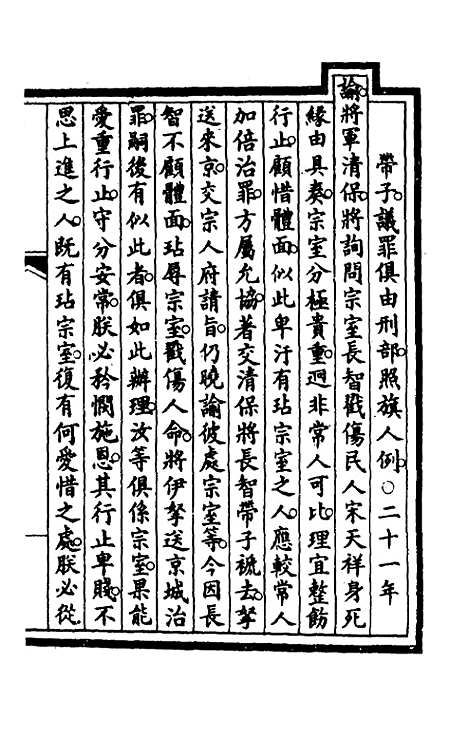 帶子議罪俱由刑部照旗人例○二十一年
諭將軍清保將詢問宗室長智戳傷民人宋天祥身死
緣由具奏宗室分極貴重迥非常人可比理宜整飭
行止顧惜體面似此卑汙有玷宗室之人應較常人
加倍治罪方屬允協著交清保將長智帶子褫去拏
送來京交宗人府請旨仍曉諭彼處宗室等今因長
智不顧體面玷辱宗室戳傷人命將伊拏送京城治
罪嗣後有似此者俱如此辦理汝等俱係宗室果能
愛重行止守分安常朕必矜憫施恩其行止卑賤不
思上進之人旣有玷宗室復有何愛惜之處朕必從